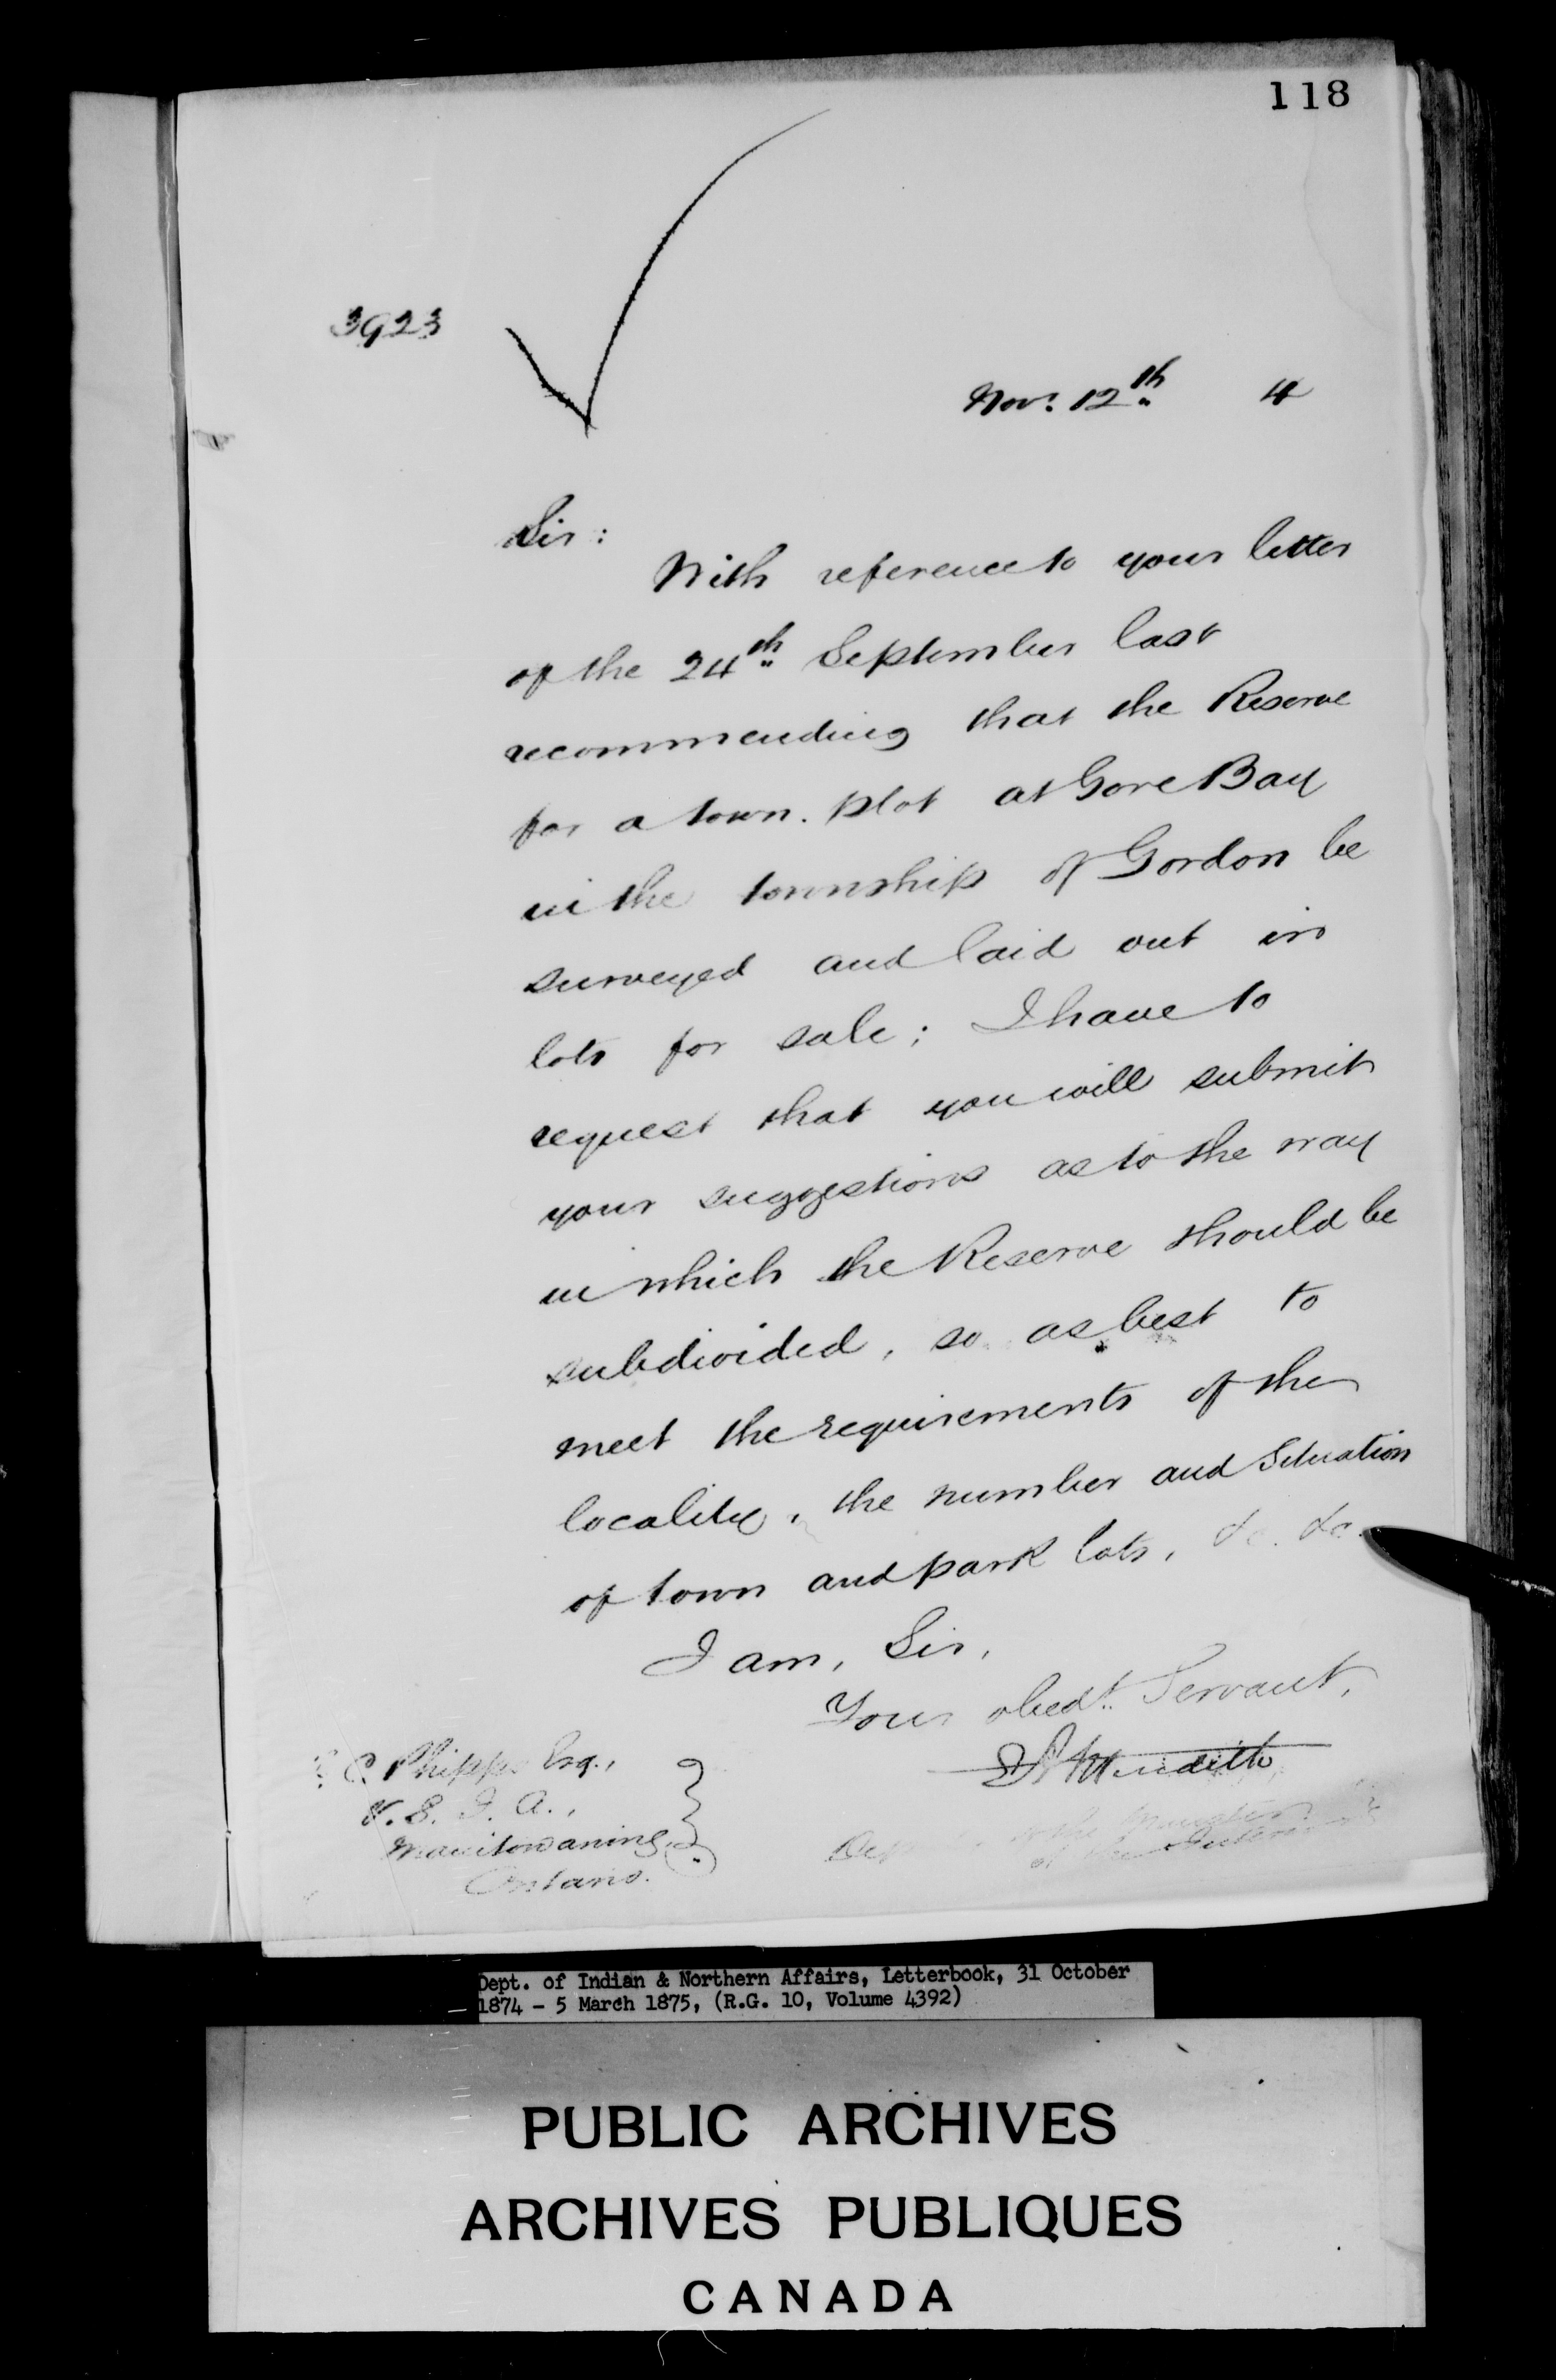 118
3923
Nov. 12th 4
Sir:
With reference to your letter
of the 24th September last
recommending that the Reserve
for a town plot at Gore Bay
in the township of Gordon be
surveyed and laid out in
lots for sale; I have to
request that you will submit
your suggestions as to the way
in which the Reserve should be
subdivided, so as best to
meet the requirements of the
locality, the number and Situation
of town and park lots, &c. &c.
I am, Sir,
Your obedt. Servant,
Meredith
of the Interior
C. Phipps Esq.,
V. S. I. A.,
Manitowaning,
Ontario.
Dept. of Indian & Northern Affairs, Letterbook, 31 October
1874 - 5 March 1875, (R.G. 10, Volume 4392)
PUBLIC ARCHIVES
ARCHIVES PUBLIQUES
CANADA